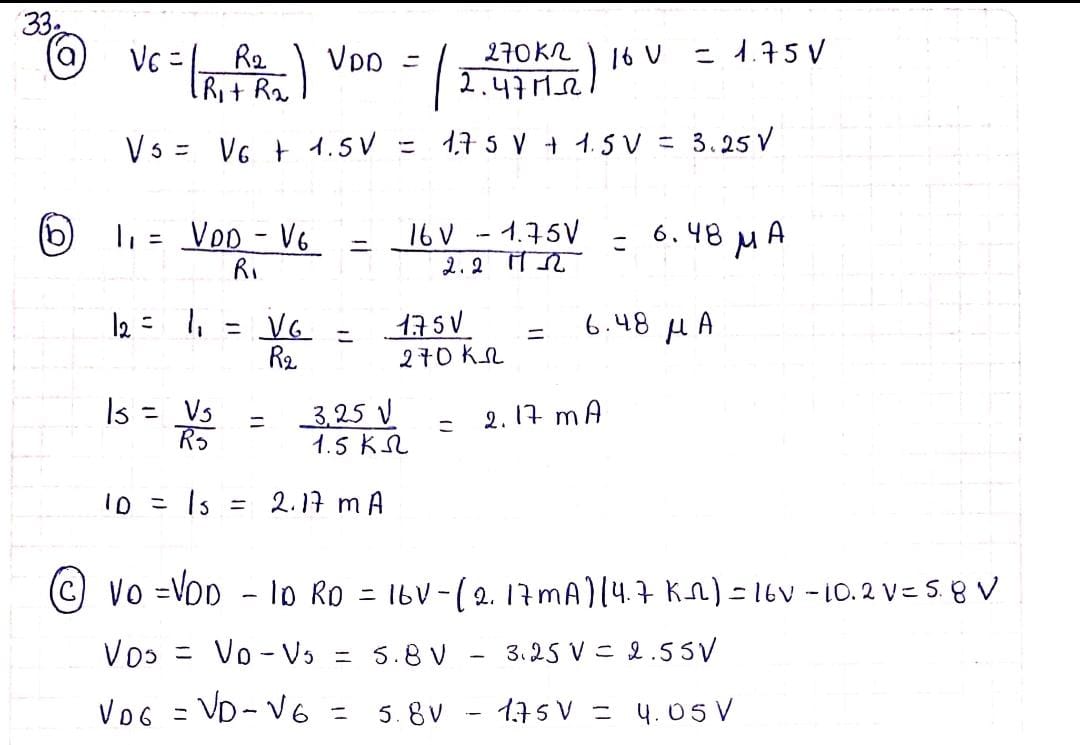 33.
(a) VG = (R2 / (R1 + R2)) VDD = (270KΩ / 2.47MΩ) 16 V = 1.75 V
VS = VG + 1.5V = 1.75 V + 1.5 V = 3.25 V
(b) I1 = (VDD - VG) / R1 = (16V - 1.75V) / (2.2 MΩ) = 6.48 μA
I2 = I1 = VG / R2 = 1.75V / 270 KΩ = 6.48 μA
IS = VS / RS = 3,25 V / 1.5 KΩ = 2.17 mA
ID = IS = 2.17 mA
(c) VD = VDD - ID RD = 16V - (2.17mA)(4.7 KΩ) = 16V - 10.2 V = 5.8 V
VDS = VD - VS = 5.8 V - 3.25 V = 2.55V
VDG = VD - VG = 5.8V - 1.75 V = 4.05 V